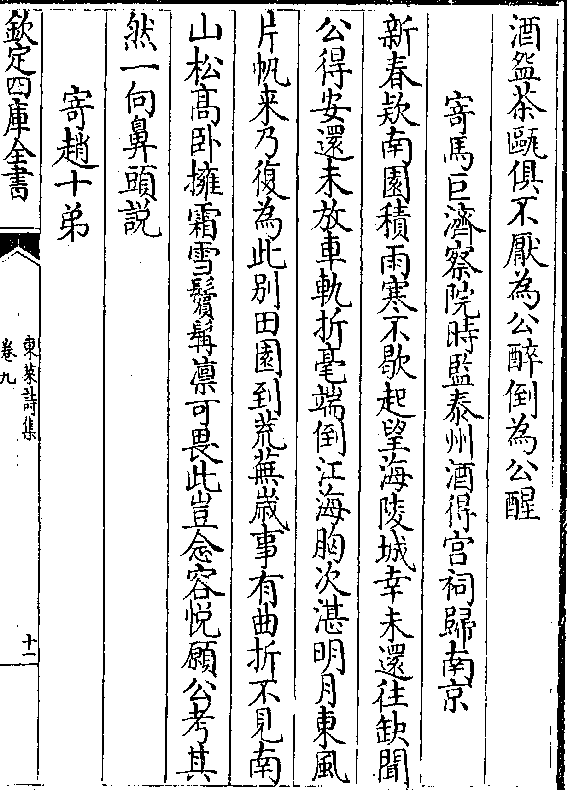 酒盌茶甌俱不厭為公醉倒為公醒
寄馬巨濟察院時監泰州酒得宫祠歸南京
新春欵南園積雨寒不歇起望海陵城幸未還往缺聞
公得安還未放車軌折毫端倒江海胸次湛明月東風
片帆来乃復為此别田園到荒蕪嵗事有曲折不見南
山松髙卧擁霜雪鬚髯凛可畏此豈念容悦願公考其
然一向鼻頭説
寄趙十弟
欽定四庫全書
東萊詩集
卷九
十一